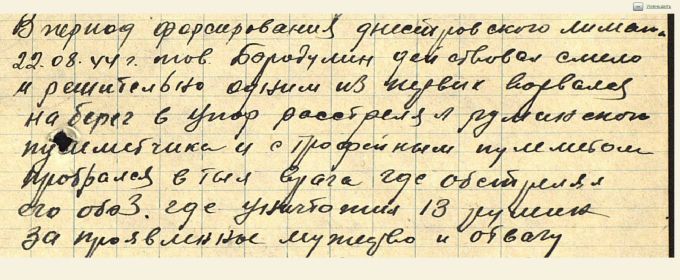 В период форсирования днестровского лимана
22.08.44 г. тов. Бородулин действовал смело
и решительно одним из первых ворвался
на берег в упор расстрелял румынского
пулеметчика и с трофейным пулеметом
пробрался в тыл врага где обстрелял
его обоз. где уничтожил 13 румын
За проявленные мужество и отвагу